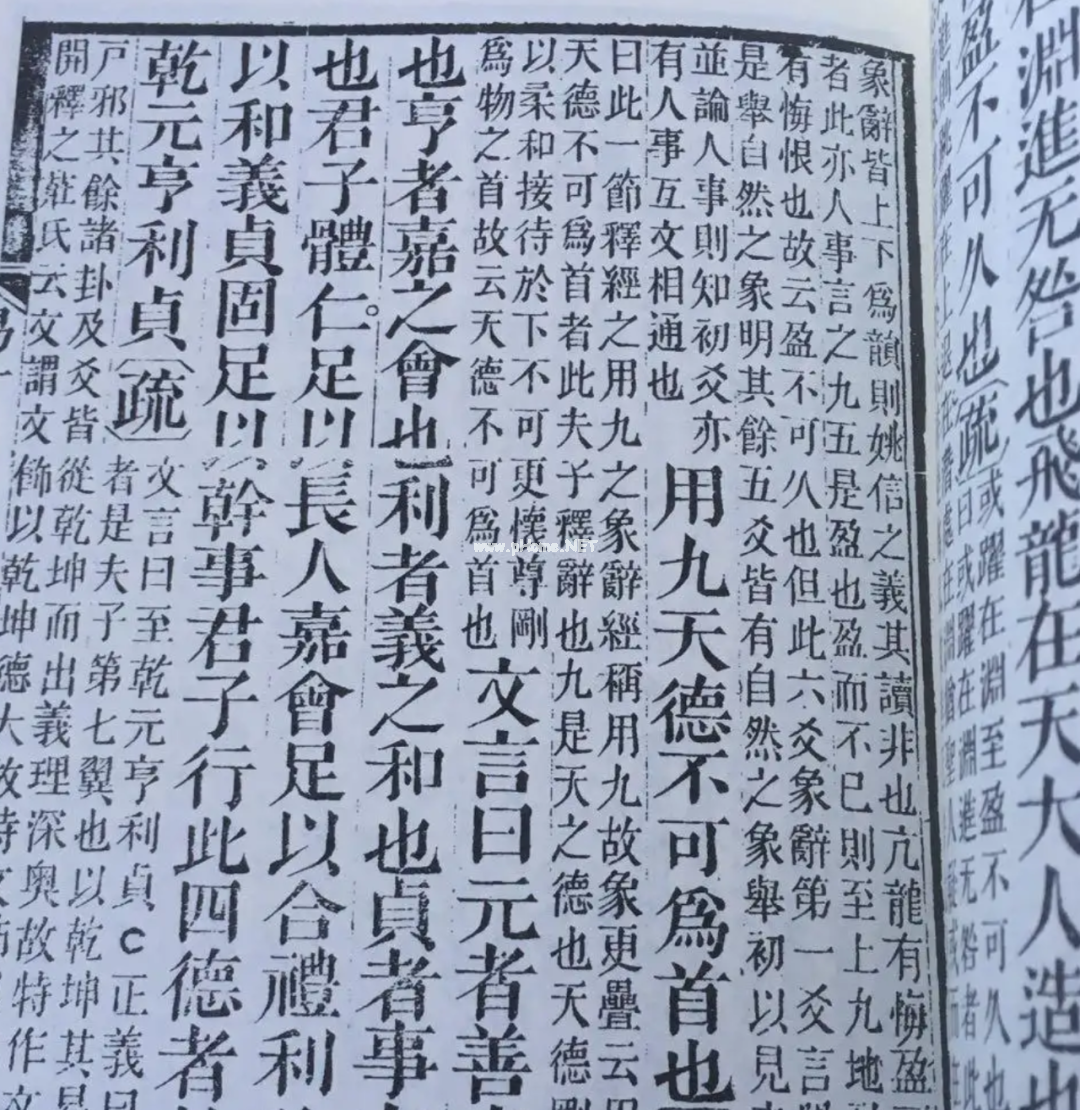 淵進无咎也飛龍在天大人造也
盈不可久也〔疏〕
或躍在淵至盈不可久也
曰或躍在淵進无咎者此
象辭皆上下為韻則姚信之義其讀非也亢龍有悔盈
者此亦人事言之九五是盈也盈而不已則至上九地
有悔恨也故云盈不可久也但此六爻象辭第一爻言
是舉自然之象明其餘五爻皆有自然之象舉初以見
並論人事則知初爻亦
有人事互文相通也
用九天德不可為首也
曰此一節釋經之用九之象辭經稱用九故象更疊云
天德不可為首者此夫子釋辭也九是天之德也天德
以柔和接待於下不可更懷尊剛
為物之首故云天德不可為首也
文言曰元者善
也亨者嘉之會也利者義之和也貞者事
也君子體仁足以長人嘉會足以合禮利
以和義貞固足以幹事君子行此四德者
乾元亨利貞〔疏〕
文言曰至乾元亨利貞C正義曰
者是夫子第七翼也以乾坤其
戶邪其餘諸卦及爻皆從乾坤而出義理深奧故特作文
開釋之莊氏云文謂文飾以乾坤德大故特文飾